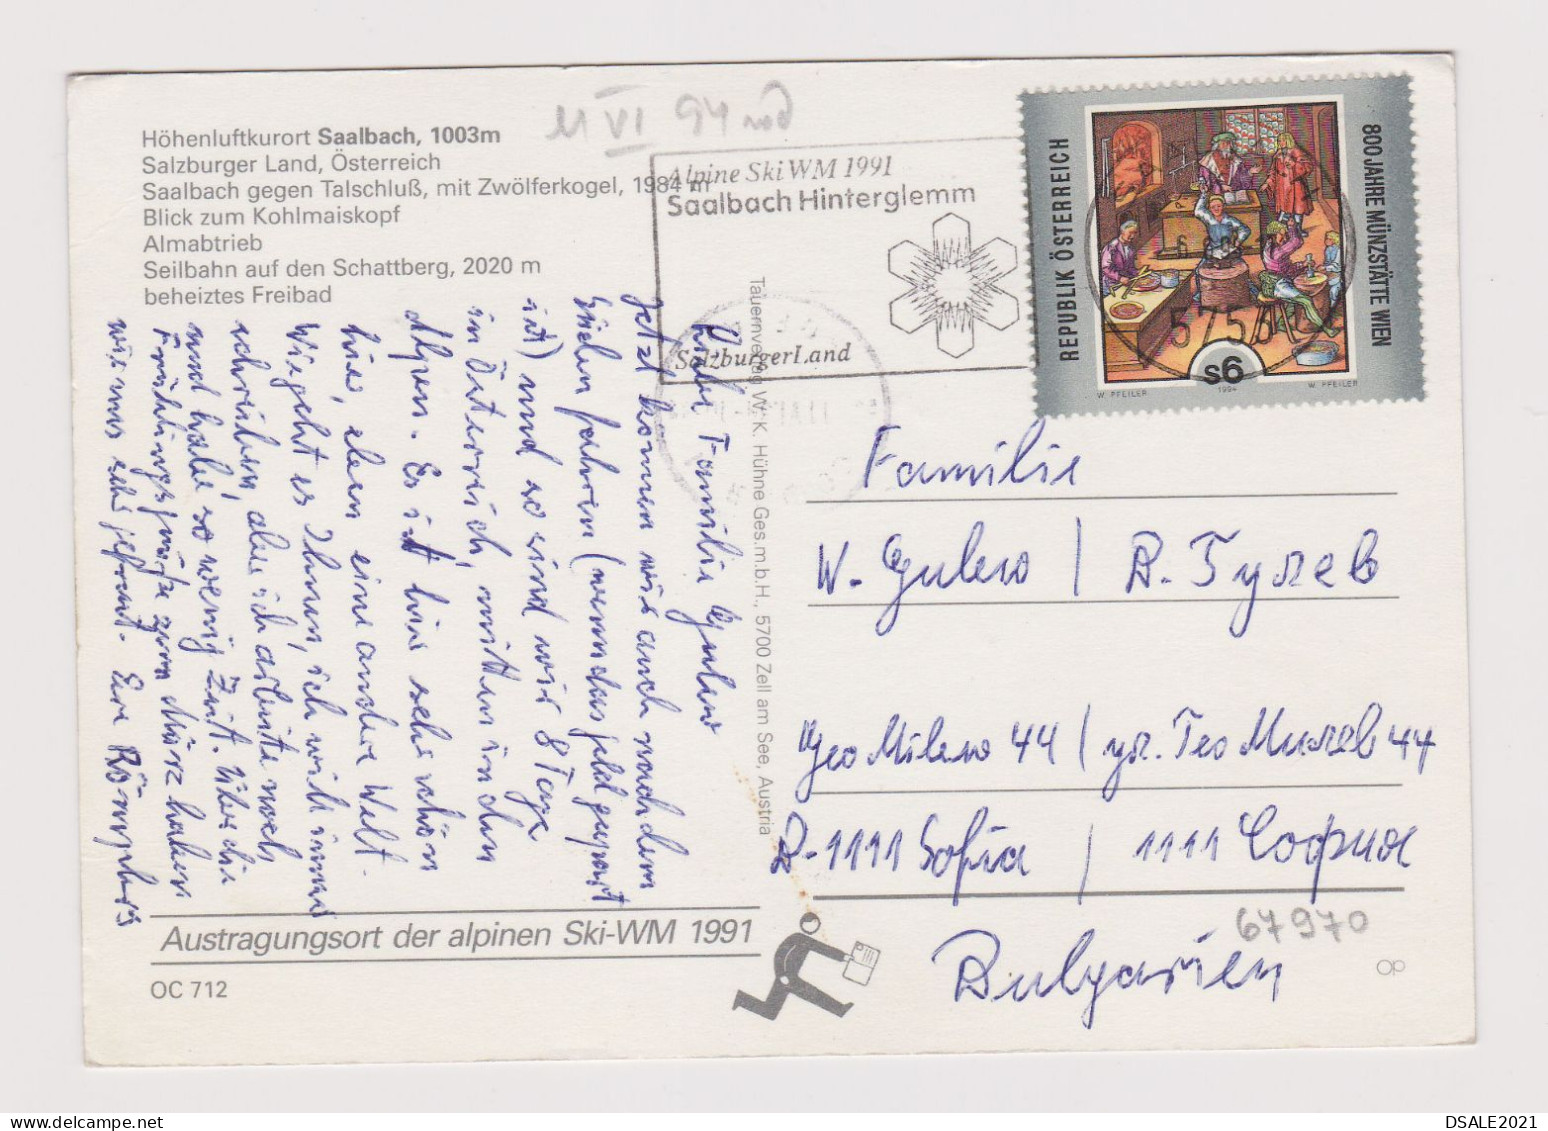 Höhenluftkurort Saalbach, 1003m
Salzburger Land, Österreich
Saalbach gegen Talschluß, mit Zwölferkogel, 1984 m
Blick zum Kohlmaiskopf
Almabtrieb
Seilbahn auf den Schattberg, 2020 m
beheiztes Freibad
11 VI 94
Alpine Ski WM 1991
Saalbach Hinterglemm
SalzburgerLand
REPUBLIK ÖSTERREICH
800 JAHRE MÜNZSTÄTTE WIEN
s6
W. PFEILER
1994
W. PFEILER
5753
Liebe Familie Gulew
jetzt kommen wir auch nach dem
Süden fahren (wenn das Geld gespart
ist) und so sind wir 8 Tage
in Österreich, mitten in den
Alpen. Es ist hier sehr schön
hier, eben eine andere Welt.
Wie geht es Ihnen, ich will immer
schreiben, aber ich arbeite noch
und habe so wenig Zeit. Über die
Frühlingsgrüße zum März haben
wir uns sehr gefreut. Eure
Tauernverlag W. K. Hühne Ges.m.b.H., 5700 Zell am See, Austria
Familie
W. Gulew / В. Гулев
Geo Milew 44 / ул. Гео Милев 44
1111 Sofia / 1111 София
Bulgarien
67970
Austragungsort der alpinen Ski-WM 1991
OC 712
OP
DSALE2021